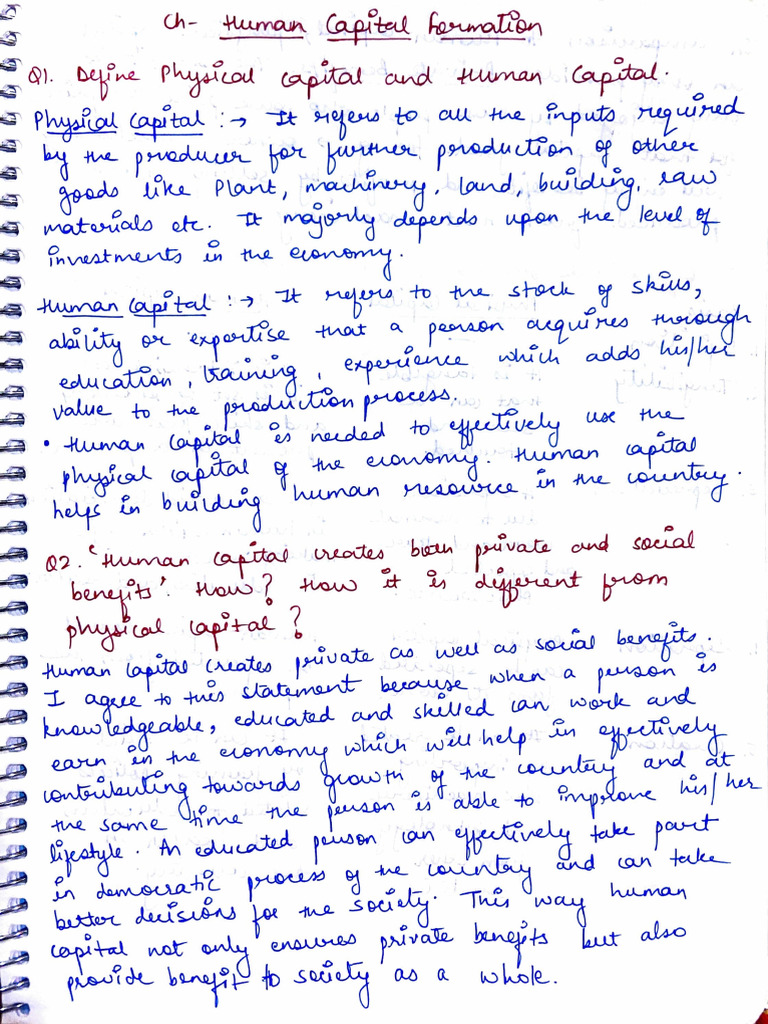 Ch- Human Capital Formation
Q1. Define Physical capital and Human Capital.
Physical Capital :→ It refers to all the inputs required
by the producer for further production of other
goods like Plant, machinery, land, building, raw
materials etc. It majorly depends upon the level of
investments in the economy.
Human Capital :→ It refers to the stock of skills,
ability or expertise that a person acquires through
education, training, experience which adds his/her
value to the production process.
• Human capital is needed to effectively use the
physical capital of the economy. Human capital
helps in building human resource in the country.
Q2. 'Human capital creates both private and social
benefits'. How? How it is different from
physical capital?
Human Capital creates private as well as social benefits.
I agree to this statement because when a person is
knowledgeable, educated and skilled can work and
earn in the economy which will help in effectively
contributing towards growth of the country and at
the same time the person is able to improve his/her
lifestyle. An educated person can effectively take part
in democratic process of the country and can take
better decisions for the society. This way human
capital not only ensures private benefits but also
provide benefit to society as a whole.